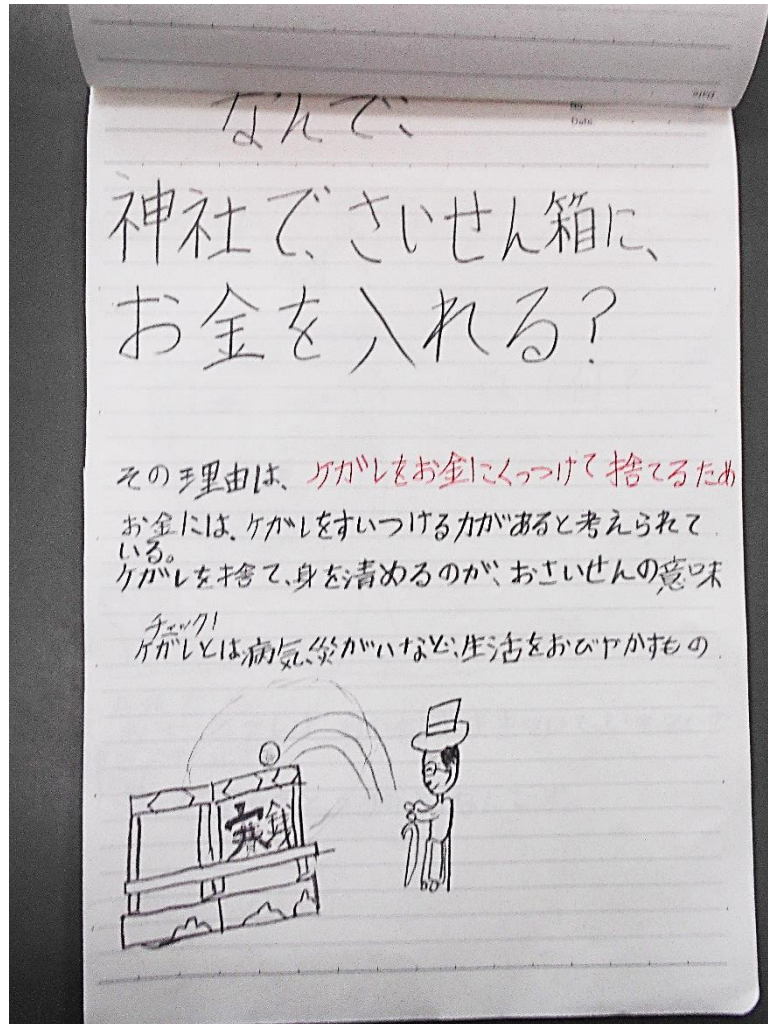 なんで、
神社で、さいせん箱に、
お金を入れる?
その理由は、ケガレをお金にくっつけて捨てるため
お金には、ケガレをすいつける力があると考えられて
いる。
ケガレを捨て、身を清めるのが、おさいせんの意味
チェック!
ケガレとは病気、災がいなど、生活をおびやかすもの
賽銭